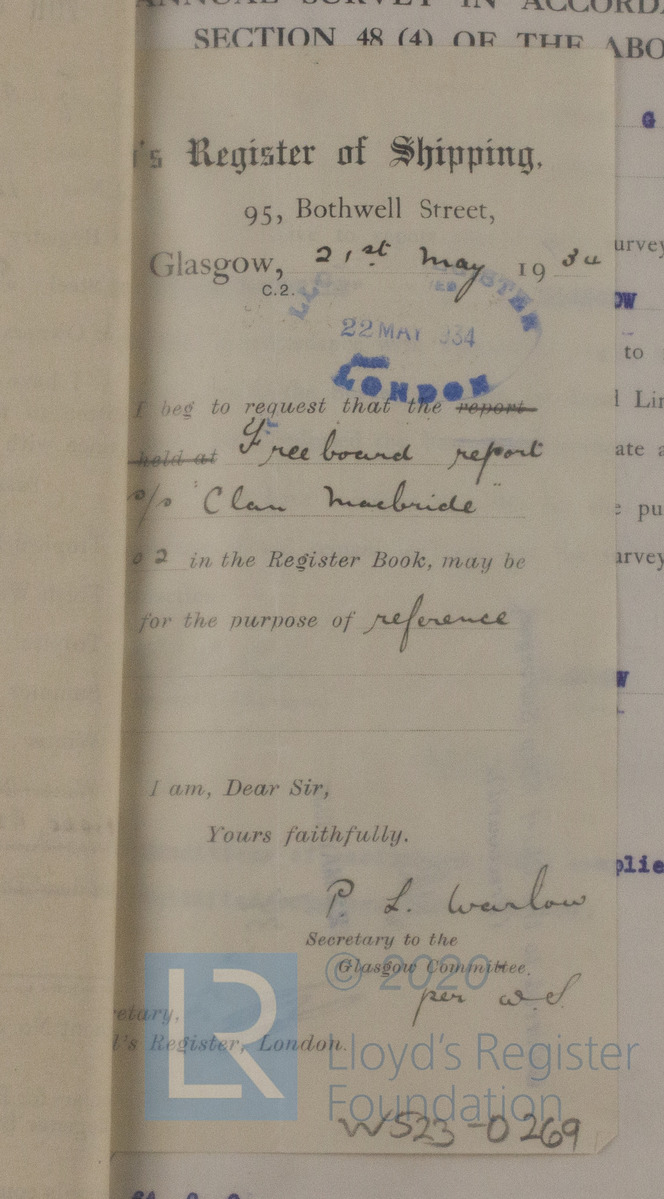 ANNUAL SURVEY IN
SECTION 48 (4) OF THE
's Register of Shipping.
95, Bothwell Street,
Glasgow, 21st May 1934
C.2.
22 MAY 934
LONDON
I beg to request that the report
held at Freeboard report
s/s "Clan Macbride"
02 in the Register Book, may be
for the purpose of reference
I am, Dear Sir,
Yours faithfully.
P. L. Warlow
Secretary to the
Glasgow Committee.
per W.S.
retary,
l's Register, London.
© 2020
LR
Lloyd's Register
Foundation
WS23-0269
G
urvey
OW
to
ate a
e pu
urvey
W
plie